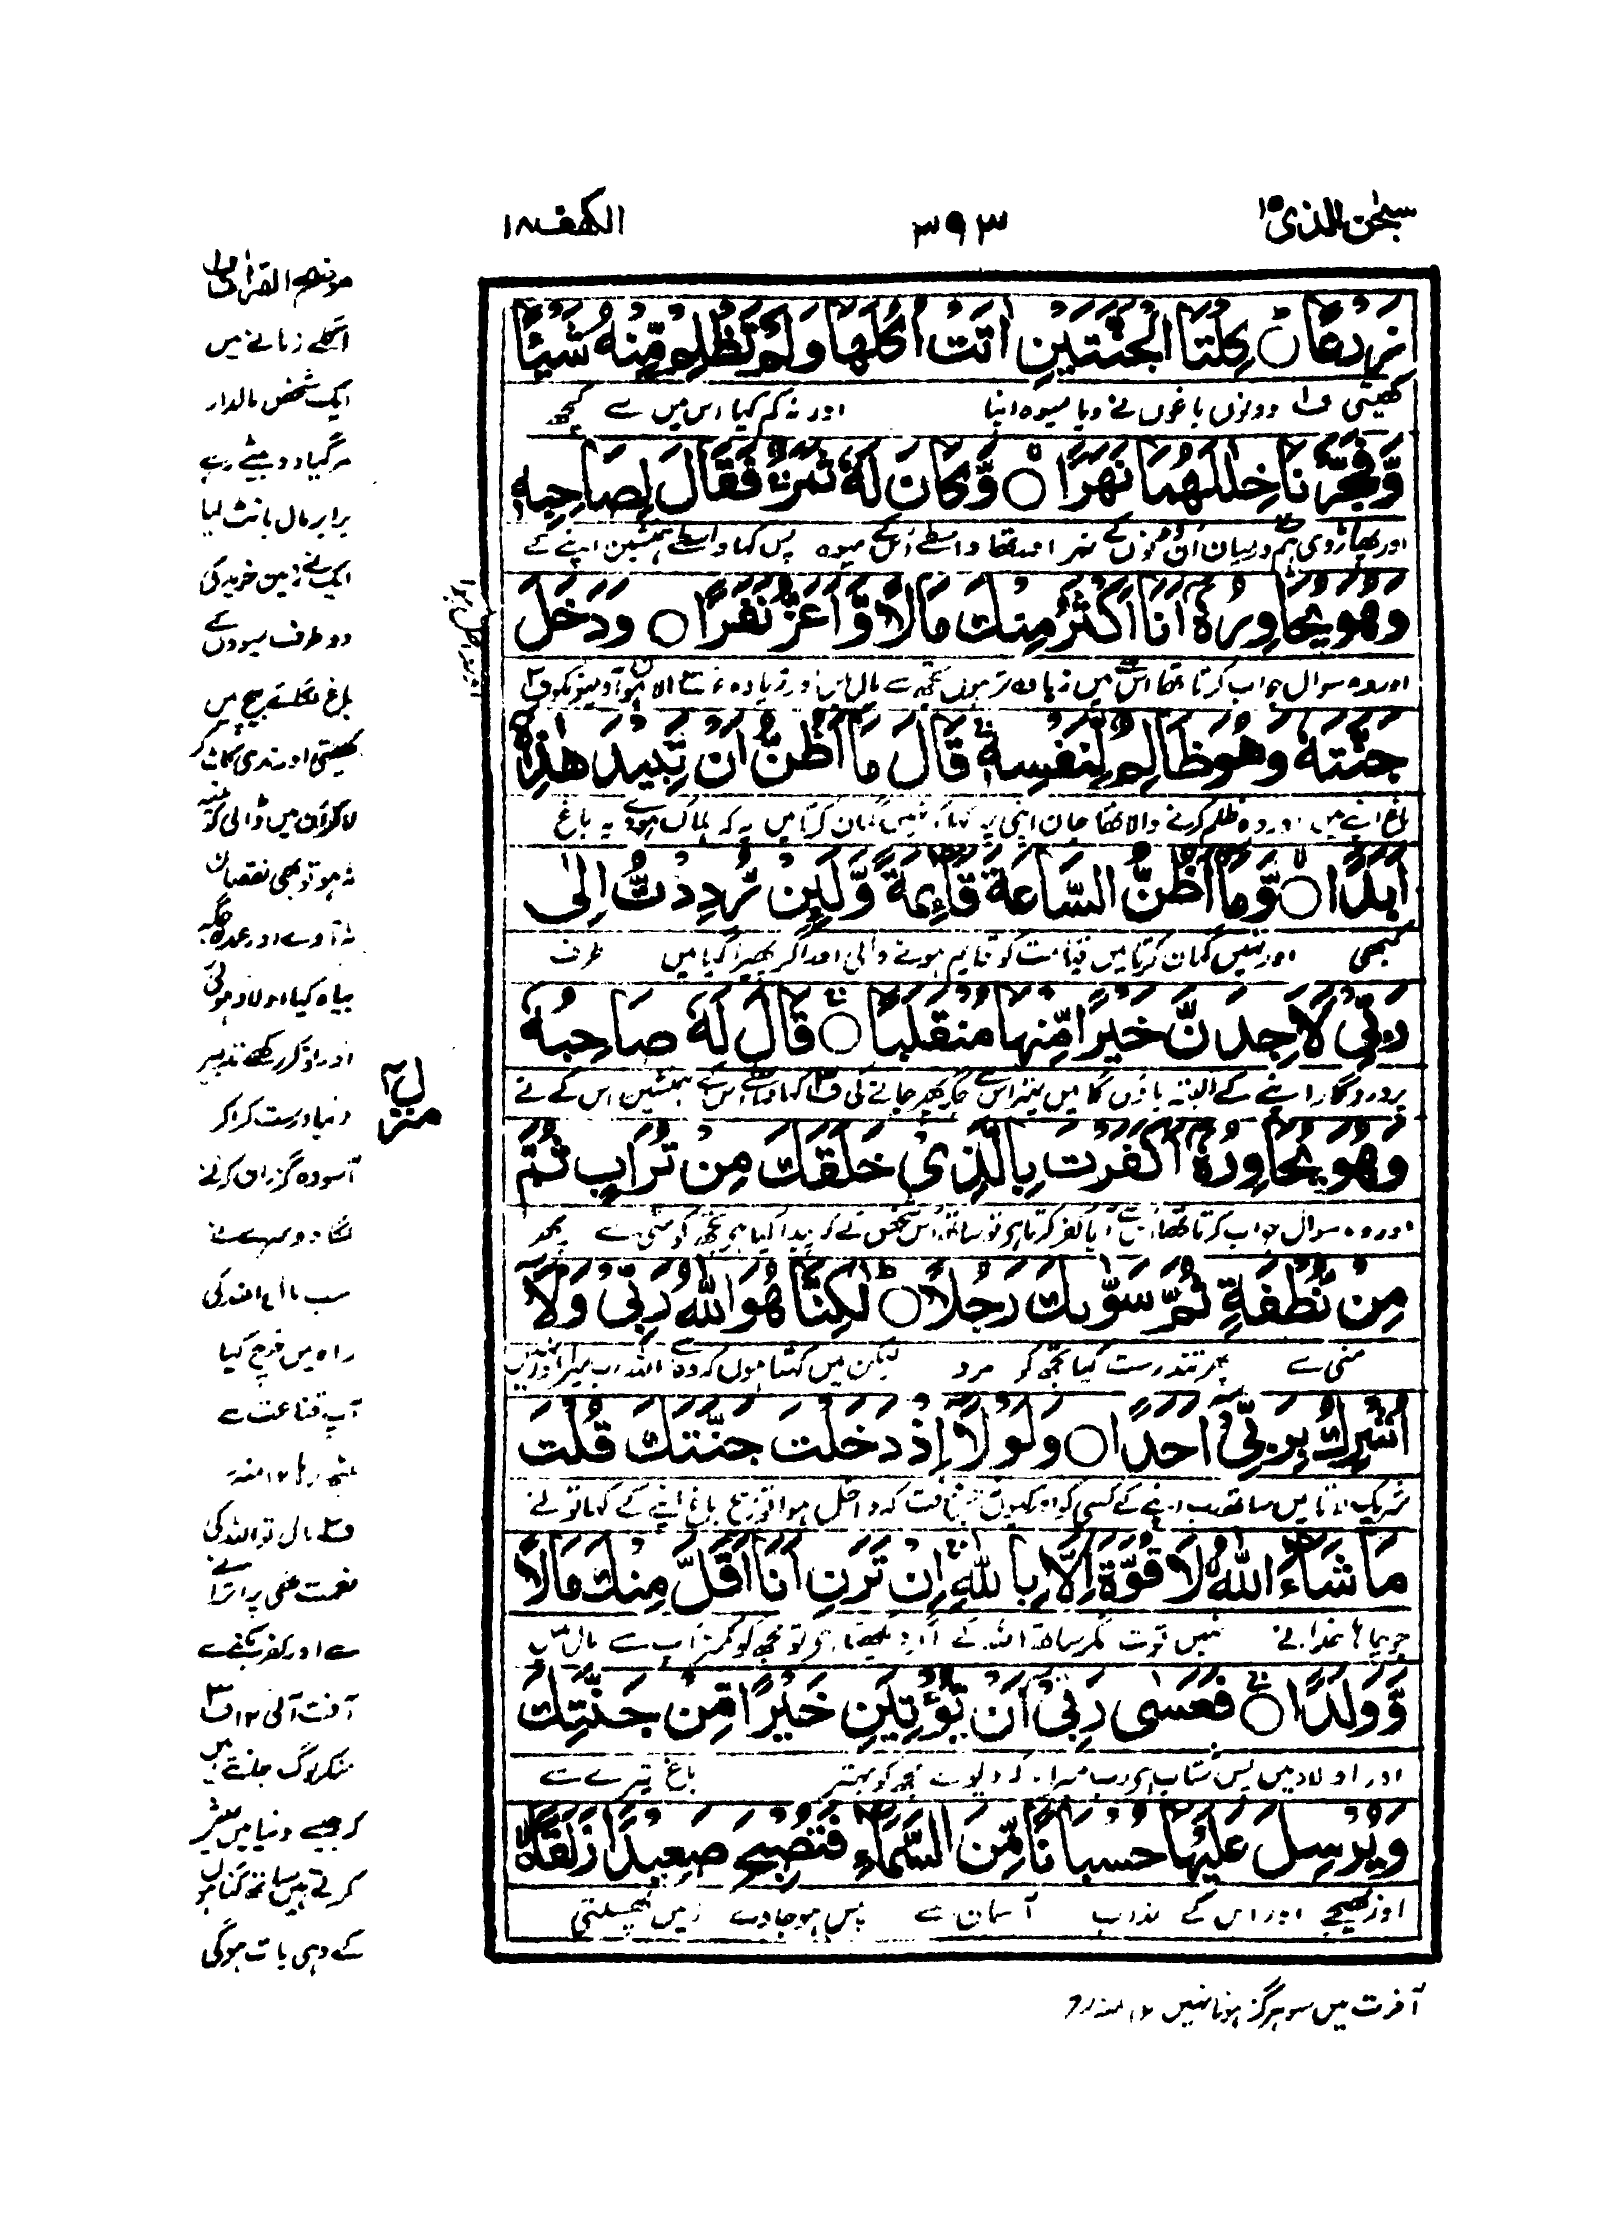 سبحن الذی ۱۵
۳۹۳
الکھف ۱۸
زَرْعًا ۝ كِلْتَا الْجَنَّتَيْنِ اٰتَتْ اُكُلَهَا وَلَمْ تَظْلِمْ مِّنْهُ شَيْئًا
کھیتی ف۱ دونوں باغوں نے دیا میوہ اپنا اور نہ کم کیا اس میں سے کچھ
وَّفَجَّرْنَا خِلٰلَهُمَا نَهَرًا ۝ وَّكَانَ لَهٗ ثَمَرٌ ۚ فَقَالَ لِصَاحِبِهٖ
اور پھاڑ دی ہم نے درمیان ان دونوں کے نہر اور تھا واسطے اس کے میوہ پس کہا واسطے ہمنشین اپنے کے
وَهُوَ يُحَاوِرُهٗٓ اَنَا اَكْثَرُ مِنْكَ مَالًا وَّاَعَزُّ نَفَرًا ۝ وَدَخَلَ
اور وہ سوال جواب کرتا تھا اس سے میں زیادہ تر ہوں تجھ سے مال میں اور زیادہ عزت والا ہوں آدمیوں کو ف۲
جَنَّتَهٗ وَهُوَ ظَالِمٌ لِّنَفْسِهٖ ۚ قَالَ مَآ اَظُنُّ اَنْ تَبِيْدَ هٰذِهٖٓ
باغ اپنے میں اور وہ ظلم کرنے والا تھا جان اپنی پر کہا نہیں گمان کرتا میں یہ کہ ہلاک ہووے یہ باغ
اَبَدًا ۝ وَّمَآ اَظُنُّ السَّاعَةَ قَآئِمَةً وَّلَئِنْ رُّدِدْتُّ اِلٰى
کبھی اور نہیں گمان کرتا میں قیامت کو قایم ہونے والی اور اگر پھیرا گیا میں طرف
رَبِّيْ لَاَجِدَنَّ خَيْرًا مِّنْهَا مُنْقَلَبًا ۝ قَالَ لَهٗ صَاحِبُهٗ
پروردگار اپنے کے البتہ پاؤں گا میں بہتر اس سے جگہ پھر جانے کی ف۳ کہا واسطے اس کے ہمنشین اس کے نے
وَهُوَ يُحَاوِرُهٗٓ اَكَفَرْتَ بِالَّذِيْ خَلَقَكَ مِنْ تُرَابٍ ثُمَّ
اور وہ سوال جواب کرتا تھا اس سے آیا کفر کرتا ہی تو ساتھ اس شخص کے کہ پیدا کیا ہی تجھ کو مٹی سے پھر
مِنْ نُّطْفَةٍ ثُمَّ سَوّٰىكَ رَجُلًا ۝ لٰكِنَّا۠ هُوَ اللّٰهُ رَبِّيْ وَلَآ
منی سے پھر تندرست کیا تجھ کو مرد لیکن میں کہتا ہوں کہ وہ اللہ رب میرا اور نہیں
اُشْرِكُ بِرَبِّيْٓ اَحَدًا ۝ وَلَوْلَآ اِذْ دَخَلْتَ جَنَّتَكَ قُلْتَ
شریک لاتا میں ساتھ رب اپنے کے کسی کو اور کیوں نہ جس وقت کہ داخل ہوا تو بیچ باغ اپنے کے کہا تو نے
مَا شَآءَ اللّٰهُ ۙ لَا قُوَّةَ اِلَّا بِاللّٰهِ ۚ اِنْ تَرَنِ اَنَا اَقَلَّ مِنْكَ مَالًا
جو چاہا خدا نے نہیں قوت مگر ساتھ اللہ کے اگر دیکھتا ہی تو مجھ کو کمتر آپ سے مال میں
وَّوَلَدًا ۝ فَعَسٰى رَبِّيْٓ اَنْ يُّؤْتِيَنِ خَيْرًا مِّنْ جَنَّتِكَ
اور اولاد میں پس شتاب ہی رب میرا یہ کہ دیوے مجھ کو بہتر باغ تیرے سے
وَيُرْسِلَ عَلَيْهَا حُسْبَانًا مِّنَ السَّمَآءِ فَتُصْبِحَ صَعِيْدًا زَلَقًا ۝
اور بھیجے اوپر اس کے عذاب آسمان سے پس ہو جاوے زمین پھسلتی
موضح القرآن ف۱
اگلے زمانے میں
ایک شخص مالدار
مر گیا دو بیٹے رہے
برابر مال بانٹ لیا
ایک نے زمین خرید کی
دو طرف میووں کے
باغ لگائے بیچ میں
کھیتی اور ندی کاٹ کر
لا کر ان میں ڈالی کہ مینہ
نہ ہو تو بھی نقصان
نہ آوے اور عمدہ جگہ
بیاہ کیا اولاد ہوئی
اور نوکر رکھے تدبیر
دنیا درست کر کر
آسودہ گزران کرنے
لگا دوسرے نے
سب مال اللہ کی
راہ میں خرچ کیا
آپ قناعت سے
بیٹھ رہا ۱۲ منہ رح
ف۲ مال تو اللہ کی
نعمت تھی پر اترانے
سے اور کفر بکنے سے
آفت آئی ۱۲ ف۳
منکر لوگ جانتے ہیں
کہ جیسے دنیا میں عیش
کرتے ہیں ساتھ گناہوں
کے وہی بات ہوگی
منزل ۴
آخرت میں سو ہرگز ہونا نہیں ۱۲ منہ رح